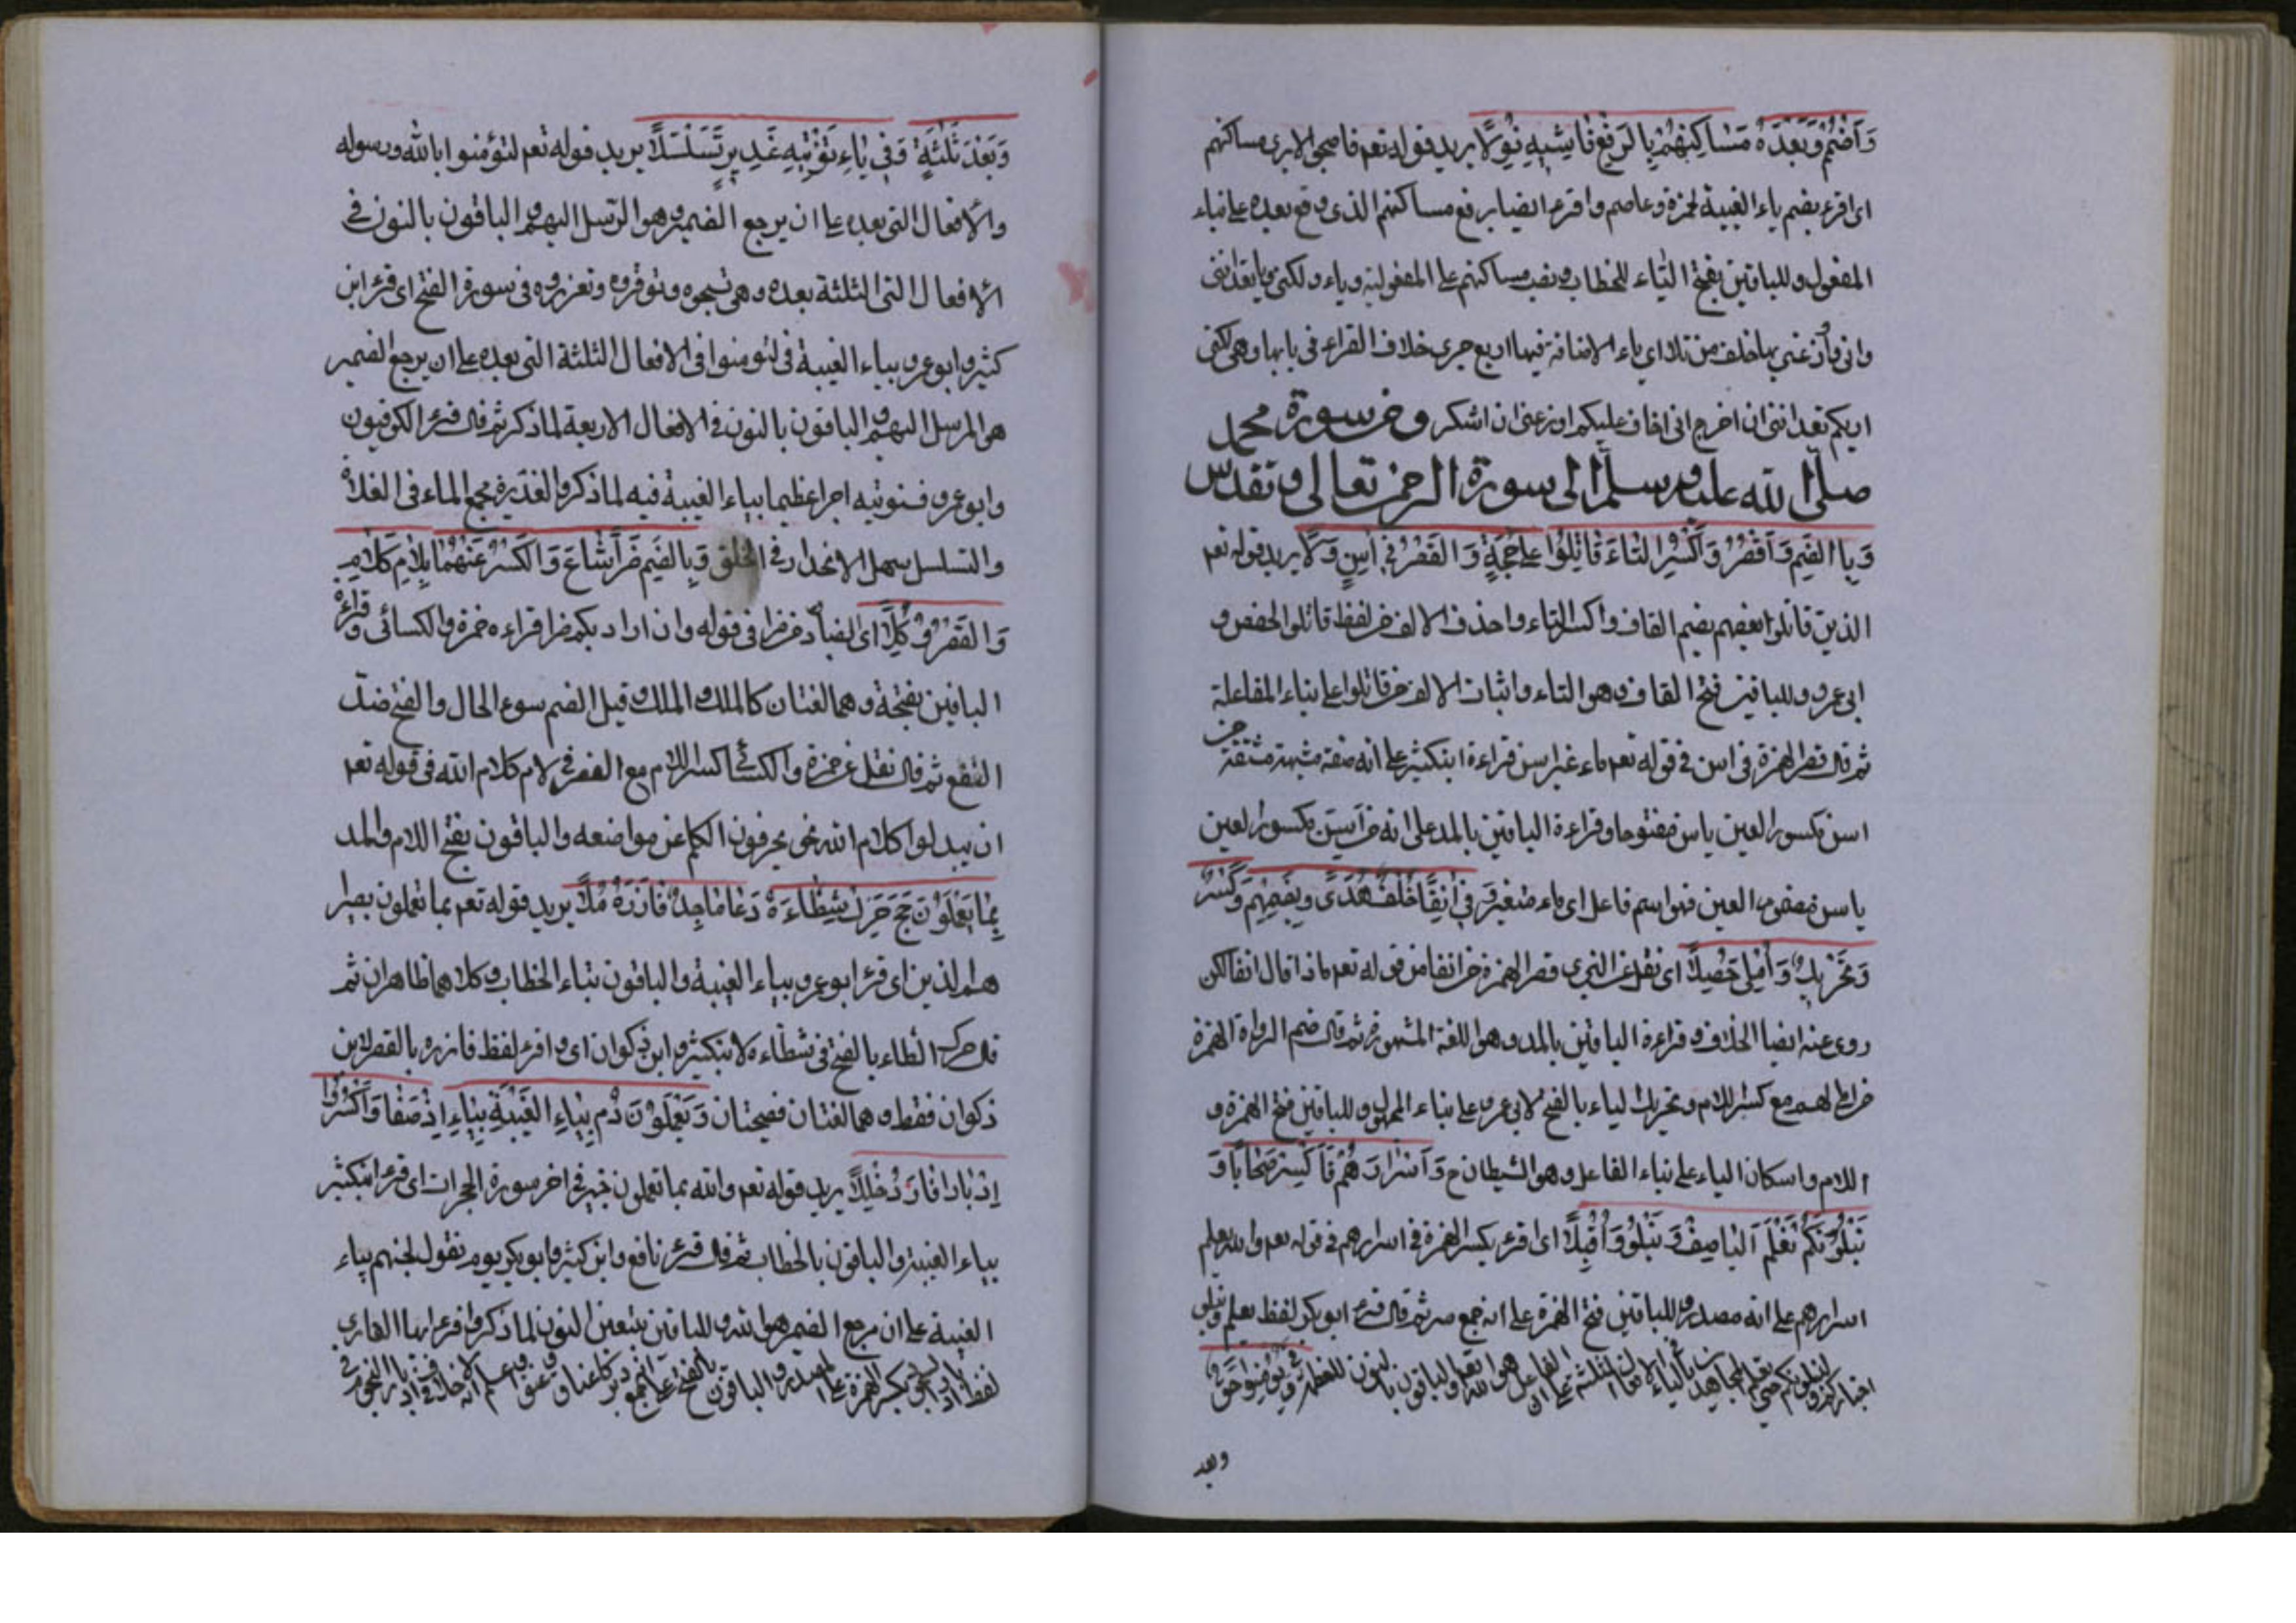 وَاضْمُمْ وَبَعْدَهُ مَسَاكِنُهُمْ بِالرَّفْعِ فَاشِيهِ نُوِّلَا يريد قوله تعم فاصبحوا لا يرى مساكنهم
اى اقرء بضم ياء الغيبة لحمزة وعاصم واقرء ايضا برفع مساكنهم الذى وقع بعده على بناء
المفعول وللباقين بفتح التاء للخطاب ونصب مساكنهم على المفعولية وياء ولكنى ويا تعداننى
وانى واوزعنى بها خلف من تلا اى ياء الاضافة فيها اربع جرى خلاف القراء فى بابها وهى لكنى
اريكم تعداننى ان اخرج انى اخاف عليكم اوزعنى ان اشكر ومن سورة محمد
صلى الله عليه وسلم الى سورة الرحمن تعالى وتقدس
وَبِالضَّمِّ وَاقْصُرْ وَاكْسِرِ التَّاءَ قَاتَلُوا عَلَى حُجَّةٍ وَالْقَصْرُ فِى آسِنٍ دَلَا يريد قوله تعم
الذين قاتلوا بعضهم بضم القاف واكسر التاء واحذف الالف من لفظ قاتلوا لحفص و
ابى عمرو وللباقين فتح القاف وهو التاء واثبات الالف من قاتلوا على بناء المفاعلة
ثم قال قصر الهمزة فى اسن فى قوله تعم ماء غير اسن قراءة ابن كثير على انه صفة مشبهة مشتقة من
اسن مكسور العين ياسن مفتوحها وقراءة الباقين بالمد على انه من اسن مكسور العين
ياسن مضموم العين فهو اسم فاعل اى ماء متغير وَفِى آنِفًا خُلْفٌ هَدَى وَبِضَمِّهِمْ وَكَسْرٍ
وَتَحْرِيكٍ وَأُمْلِيَ حُصِّلَا اى نقل عن البزى قصر الهمزة من انفا من قوله تعم ماذا قال انفا لكن
روى عنه ايضا الخلاف وقراءة الباقين بالمد وهو اللغة المشهورة ثم قال ضم الرواة الهمزة
من املى لهم مع كسر اللام وتحريك الياء بالفتح لابى عمرو على بناء المجهول وللباقين فتح الهمزة و
اللام واسكان الياء على بناء الفاعل وهو الشيطان ح وَأَسْرَارَهُمْ فَاكْسِرْ صِحَابًا وَ
نَبْلُوَنَّكُمْ نَعْلَمَ الْيَا صِفْ وَنَبْلُوَ وَاقْبَلَا اى اقرء بكسر الهمزة فى اسرارهم فى قوله تعم والله يعلم
اسرارهم على انه مصدر وللباقين فتح الهمزة على انه جمع سر ثم قال قرء ابو بكر لفظ يعلم ونبلو
اخباركم ولنبلونكم حتى نعلم المجاهدين بالياء فى الافعال الثلثة على ان الفاعل هو الله تعم والباقون بالنون للعظمة وَفِى يُؤْمِنُوا حَقٌّ
وبعد
وَبَعْدُ ثَلٰثَةٌ وَفِى يَاءِ يُؤْتِيهِ غَدِيرٌ تَسَلْسَلَا يريد قوله تعم لتؤمنوا بالله ورسوله
والافعال التى بعده على ان يرجع الضمير وهو المرسل اليهم والباقون بالنون فى
الافعال التى الثلثة بعده وهى تسبحوه وتوقروه وتعزروه فى سورة الفتح اى قرء ابن
كثير وابو عمرو بياء الغيبة فى لتومنوا فى الافعال الثلثة التى بعده على ان يرجع الضمير
هو المرسل اليهم والباقون بالنون فى الافعال الاربعة لما ذكر ثم قال قرء الكوفيون
وابو عمرو فسنوتيه اجرا عظيما بياء الغيبة فيه لما ذكر والغدير مجمع الماء فى الفلاة
والتسلسل سهل الانحدار فى الحلق وَبِالضَّمِّ ضُرًّا شَاعَ وَالْكَسْرُ عَنْهُمَا بِلَامِ كَلَامَ
وَالْقَصْرُ وُكِّلَا اى ايضا ضم ضرا فى قوله وان اراد بكم ضرا قراءة حمزة والكسائى وقراءة
الباقين بفتحة وهما لغتان كالملك والملك وقيل الضم سوء الحال والفتح ضد
النفع ثم قال نقل عن حمزة والكسائى كسر اللام مع القصر فى لام كلام الله فى قوله تعم
ان يبدلوا كلام الله نحو يحرفون الكلم عن مواضعه والباقون بفتح اللام والمد
بِمَا يَعْمَلُونَ حَجَّ حَرَّكَ شَطْأَهُ دُعَا مَاجِدٍ وَاقْصُرْ فَآزَرَهُ مُلَا يريد قوله تعم بما تعملون بصيرا
هم الذين اى قرء ابو عمرو بياء الغيبة والباقون بتاء الخطاب وكلاهما ظاهران ثم
قال حرك الطاء بالفتح فى شطاءه لابن كثير وابن ذكوان اى واقرء لفظ فازره بالقصر لابن
ذكوان فقط وهما لغتان فصيحتان وَيَعْمَلُونَ دُمْ بِيَاءِ الْغَيْبَةِ بِيَاءٍ اِذْ صَفَا وَاكْسِرُوا
اِدْبَارَ اِذْ فَازَ دُخْلُلَا يريد قوله تعم والله بما تعملون خبير فى اخر سورة الحجرات اى قرء ابن كثير
بياء الغيبة والباقون بالخطاب ثم قال قرء نافع وابن كثير وابو بكر يوم نقول لجهنم بياء
الغيبة على ان مرجع الضمير هو الله وللباقين يتعين النون لما ذكر واقرء ايها القارى
لفظ ادبار السجود بكسر الهمزة على المصدر والباقون بالفتح على انه جمع دبر كاعناق وعنق واعلم انه لا خلاف فى ادبار النجوم فى